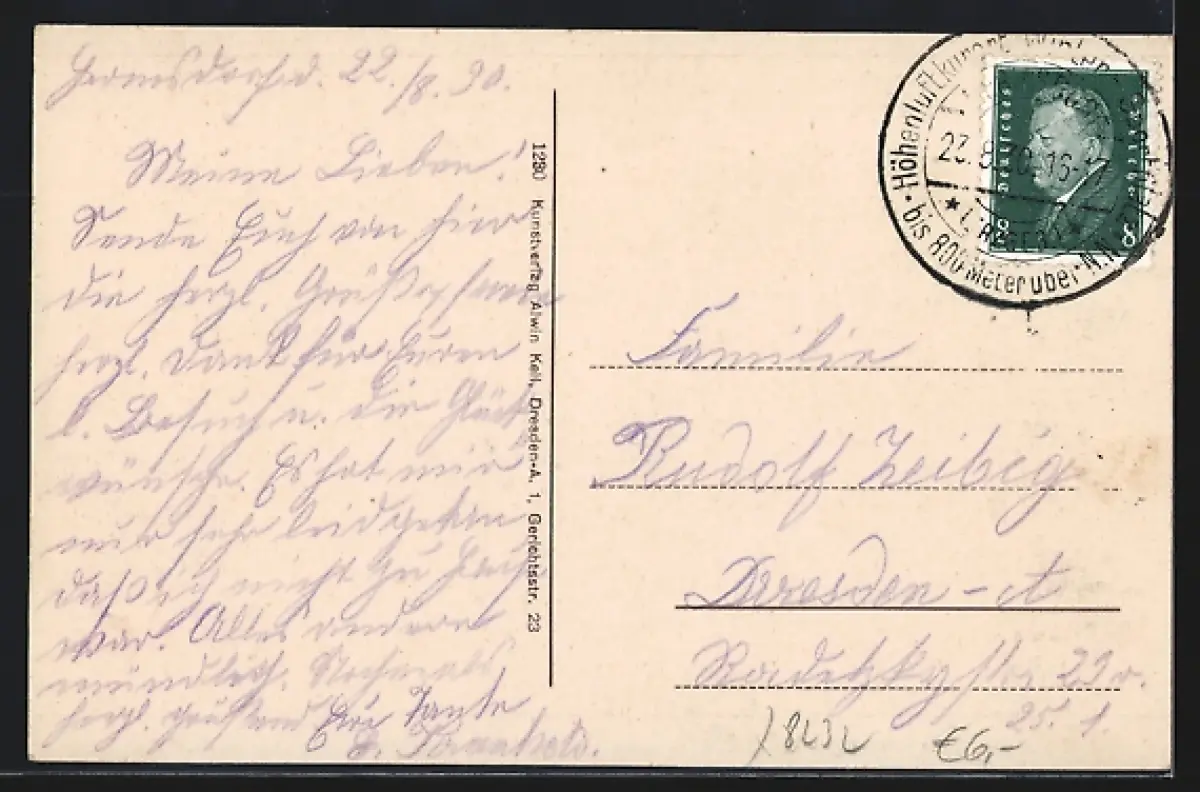 Hermsdorf d. 22./8.30.
Meine Lieben!
Sende Euch von hier
die herzl. Grüße
herzl. Dank für Euren
l. Besuch u. die Glück
wünsche. Es hat mir
nur sehr leidgetan
daß ich nicht zu Haus
war. Alles andere
mündlich. Nochmals
herzl. grüßend Eure Tante
1280 Kunstverlag Alwin Keil, Dresden-A. 1, Gerichtsstr. 23
Höhenluftkurort
23.8.30.16-17
bis 800 Meter über N.N.
Deutsches Reich
8 8
Familie
Rudolf Zeibig
Dresden-A
Radetzkystr 22
25. 1.
€6,-